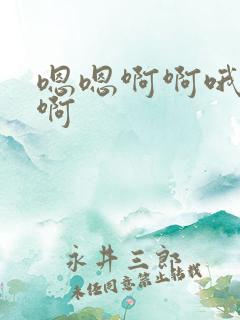 嗯嗯啊啊哦
啊
永井三郎
未经同意禁止转载